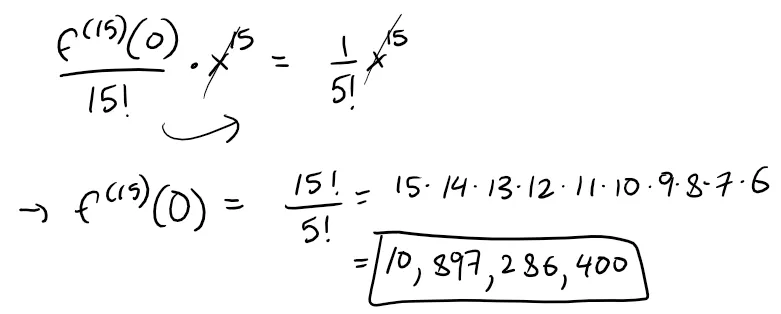 f^(15)(0)/15! · x^15 = 1/5! x^15
→ f^(15)(0) = 15!/5! = 15·14·13·12·11·10·9·8·7·6
= 10,897,286,400